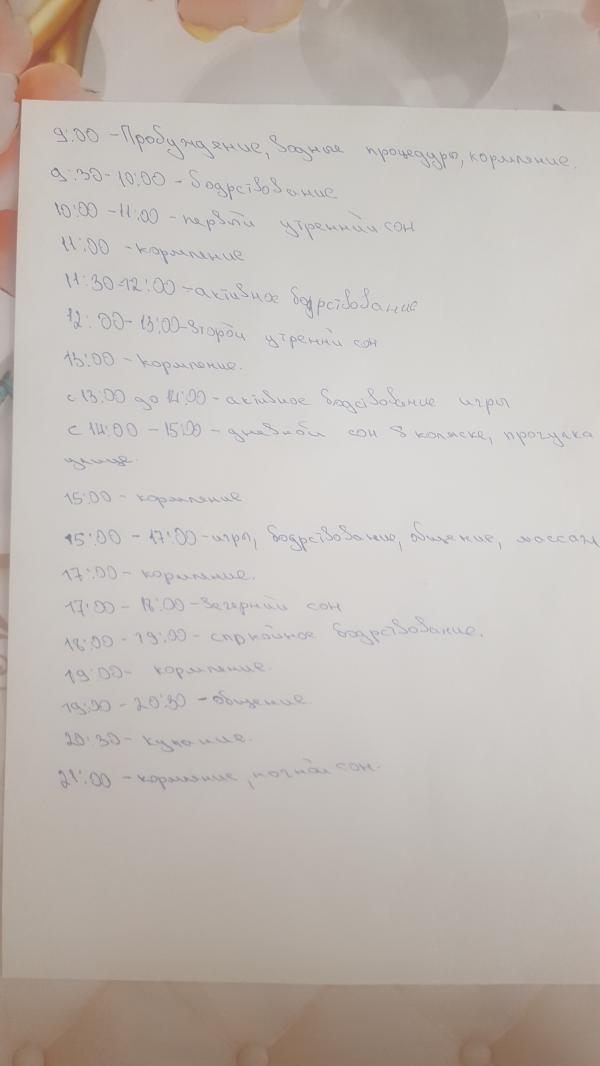 9:00 - Пробуждение, водные процедуры, кормление.
9:30-10:00 - бодрствование
10:00 - 11:00 - первый утренний сон
11:00 - кормление
11:30-12:00 - активное бодрствование
12:00 - 13:00 - второй утренний сон
13:00 - кормление.
с 13:00 до 14:00 - активное бодрствование игры
с 14:00 - 15:00 - дневной сон в коляске, прогулка
улице.
15:00 - кормление
15:00 - 17:00 - игры, бодрствование, общение, массаж
17:00 - кормление.
17:00 - 18:00 - вечерний сон
18:00 - 19:00 - спокойное бодрствование.
19:00 - кормление.
19:00 - 20:30 - общение
20:30 - купание.
21:00 - кормление, ночной сон.